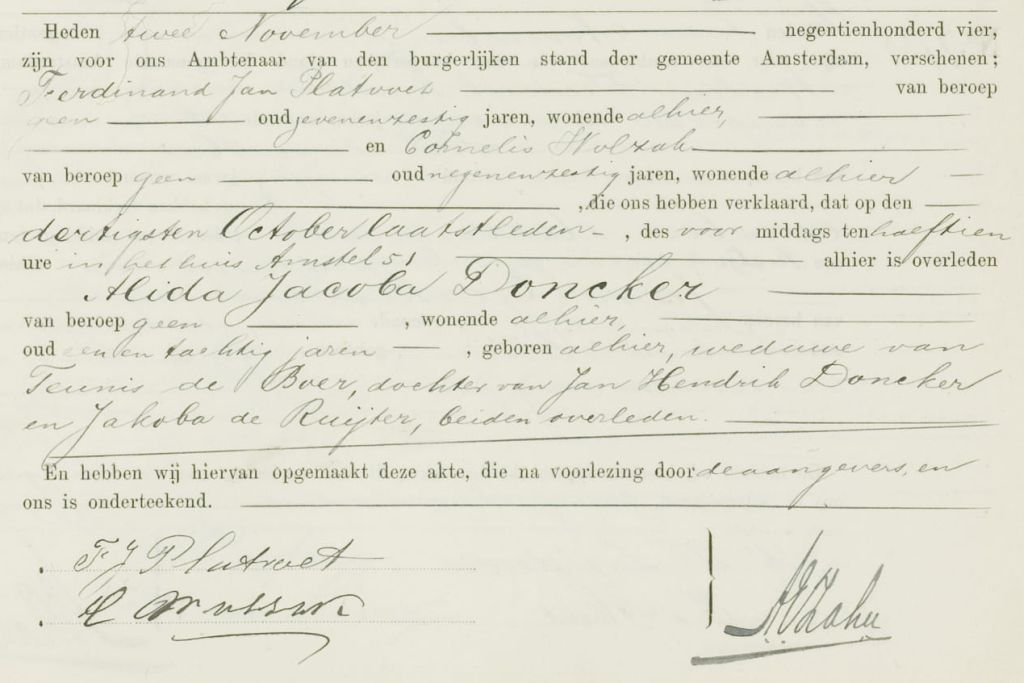 Heden twee November negentienhonderd vier,
zijn voor ons Ambtenaar van den burgerlijken stand der gemeente Amsterdam, verschenen;
Ferdinand Jan Platvoet van beroep
geen oud zevenenzestig jaren, wonende alhier,
en Cornelis
van beroep geen oud negenenzestig jaren, wonende alhier
, die ons hebben verklaard, dat op den
dertigsten October laatstleden , des voor middags ten half tien
ure in het huis Amstel 51 alhier is overleden
Alida Jacoba Doncker
van beroep geen , wonende alhier,
oud een en tachtig jaren , geboren alhier, weduwe van
Teunis de Boer, dochter van Jan Hendrik Doncker
en Jakoba de Ruijter, beiden overleden.
En hebben wij hiervan opgemaakt deze akte, die na voorlezing door de aangevers, en
ons is onderteekend.
F J Platvoet